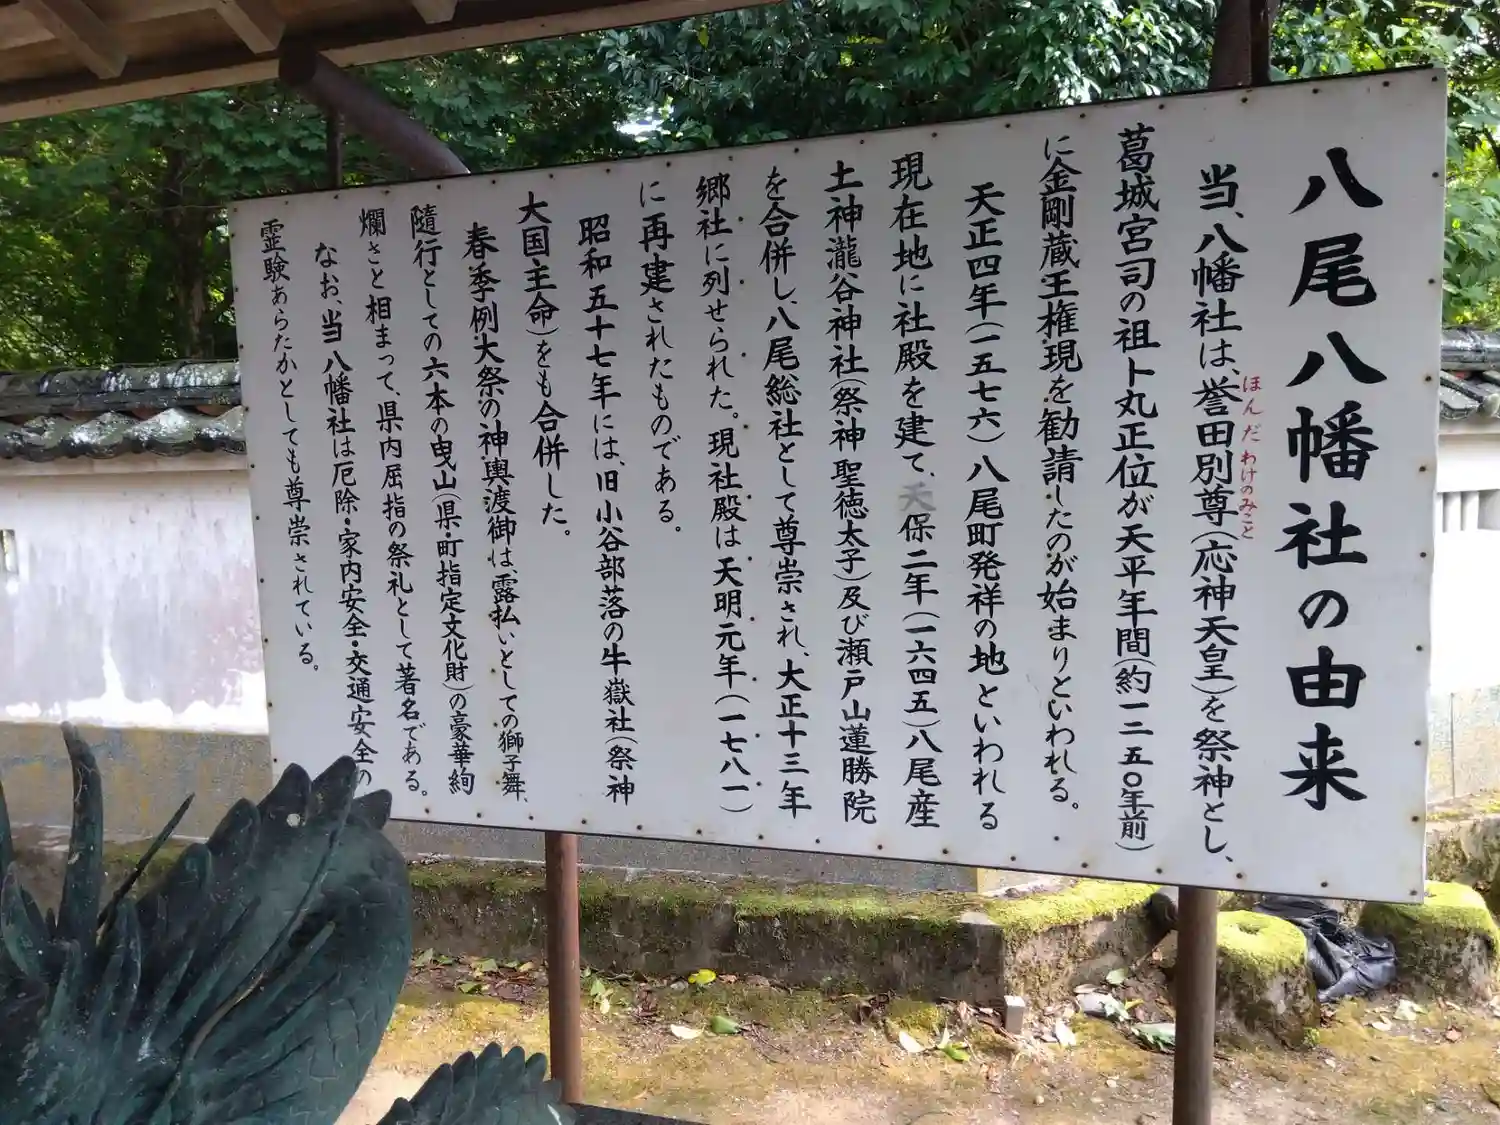 八尾八幡社の由来
当、八幡社は、誉田別尊(応神天皇)を祭神とし、
ほんだわけのみこと
葛城宮司の祖ト丸正位が天平年間(約一二五〇年前)
に金剛蔵王権現を勧請したのが始まりといわれる。
天正四年(一五七六)八尾町発祥の地といわれる
現在地に社殿を建て、天保二年(一六四五)八尾産
土神瀧谷神社(祭神聖徳太子)及び瀬戸山蓮勝院
を合併し、八尾総社として尊崇され、大正十三年
郷社に列せられた。現社殿は天明元年(一七八一)
に再建されたものである。
昭和五十七年には、旧小谷部落の牛嶽社(祭神
大国主命)をも合併した。
春季例大祭の神輿渡御は、露払いとしての獅子舞、
随行としての六本の曳山(県・町指定文化財)の豪華絢
爛さと相まって、県内屈指の祭礼として著名である。
なお、当八幡社は厄除・家内安全・交通安全の
霊験あらたかとしても尊崇されている。